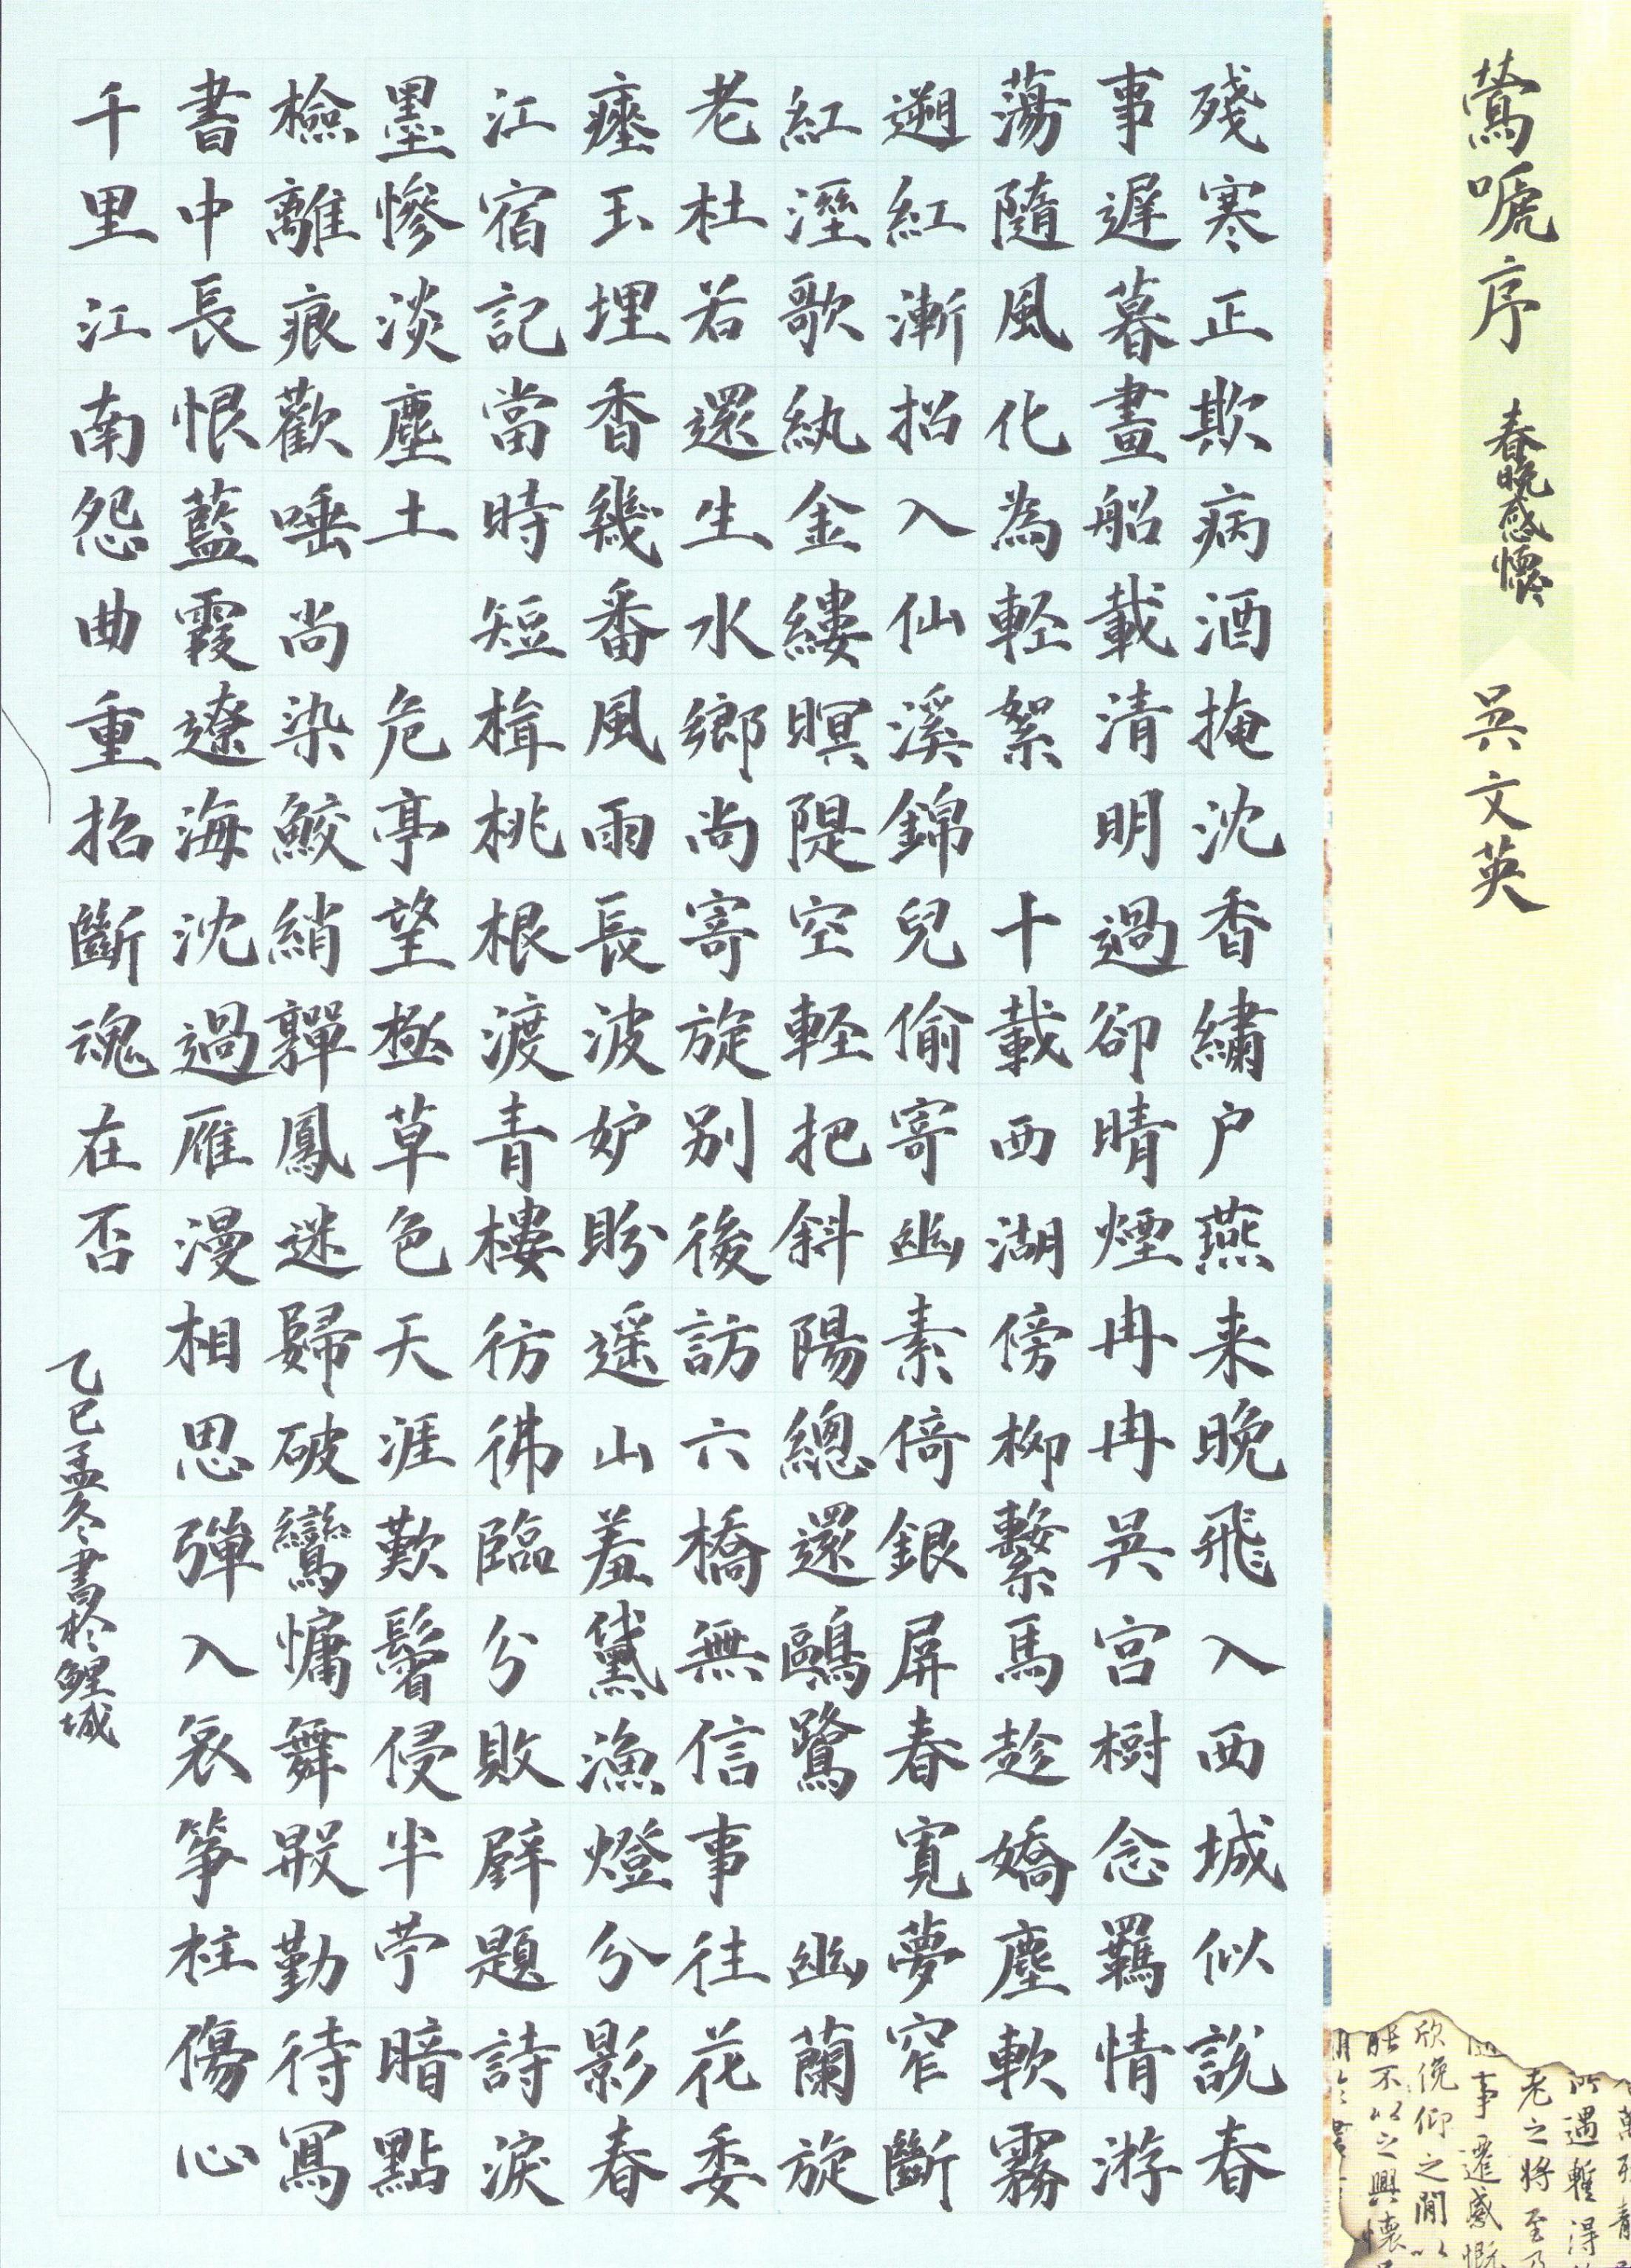 鶯嗁序 春晚感懷 吳文英
殘寒正欺病酒掩沈香繡户燕来晚飛入西城似說春
事遲暮畫船載清明過卻晴煙冉冉吳宮樹念羈情游
蕩隨風化為軽絮 十載西湖傍柳繫馬趁嬌塵軟霧
遡紅漸招入仙溪錦兒偷寄幽素倚銀屏春寬夢窄斷
紅溼歌紈金縷暝隄空軽把斜陽總還鷗鷺 幽蘭旋
老杜若還生水鄉尚寄旋別後訪六橋無信事往花委
瘞玉埋香幾番風雨長波妒盼遥山羞黛漁燈分影春
江宿記當時短楫桃根渡青樓彷彿臨分敗壁題詩淚
墨慘淡塵土 危亭望極草色天涯歎鬢侵半苧暗點
檢離痕歡唾尚染鮫綃嚲鳳迷歸破鸞慵舞殷勤待寫
書中長恨藍霞遼海沈過雁漫相思彈入哀筝柱傷心
千里江南怨曲重招斷魂在否
乙巳孟冬書於鯉城
老之將至乃
事遷感慨
欣俛仰之閒以
能不以之興懷
所遇暫得